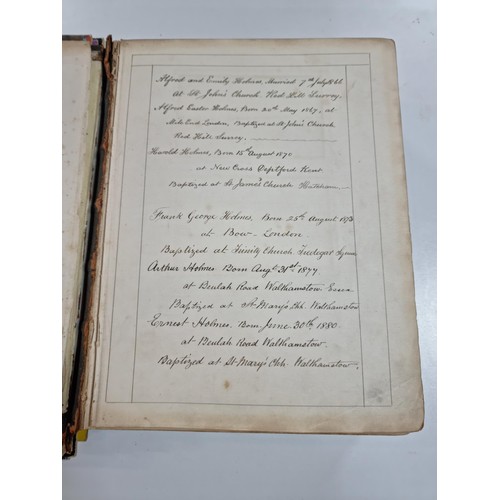 Alfred and Emily Holmes, Married 7th July 1866
At St John's Church. Red Hill Surrey.
Alfred Easter Holmes, Born 20th May 1867, at
Mile End London, Baptized at St John's Church,
Red Hill Surrey.
Harold Holmes, Born 15th August 1870
at New Cross Deptford Kent.
Baptized at St James's Church Hatcham
Frank George Holmes, Born 25th August 1873
at Bow - London
Baptized at Trinity Church Tredegar Square
Arthur Holmes Born Augt 31st 1877
at Beulah Road Walthamstow Essex
Baptized at St Mary's Chh Walthamstow
Ernest Holmes. Born June 30th 1880.
at Beulah Road Walthamstow.
Baptized at St Mary's Chh. Walthamstow.